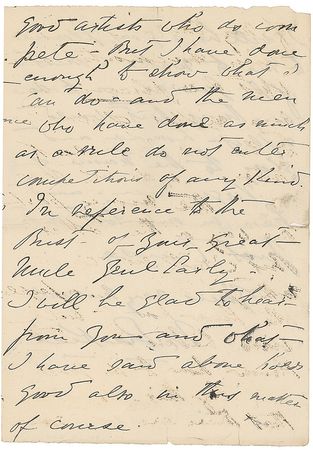 Good artists who do com
pete - But I have done
enough to show what I
can do - and the men
who have done as much
as a rule do not enter
competitions of any kind.
In reference to the
Bust of your great-
Uncle Genl Early
I will be glad to hear
from you and what-
I have said above holds
good also in this matter
of course.